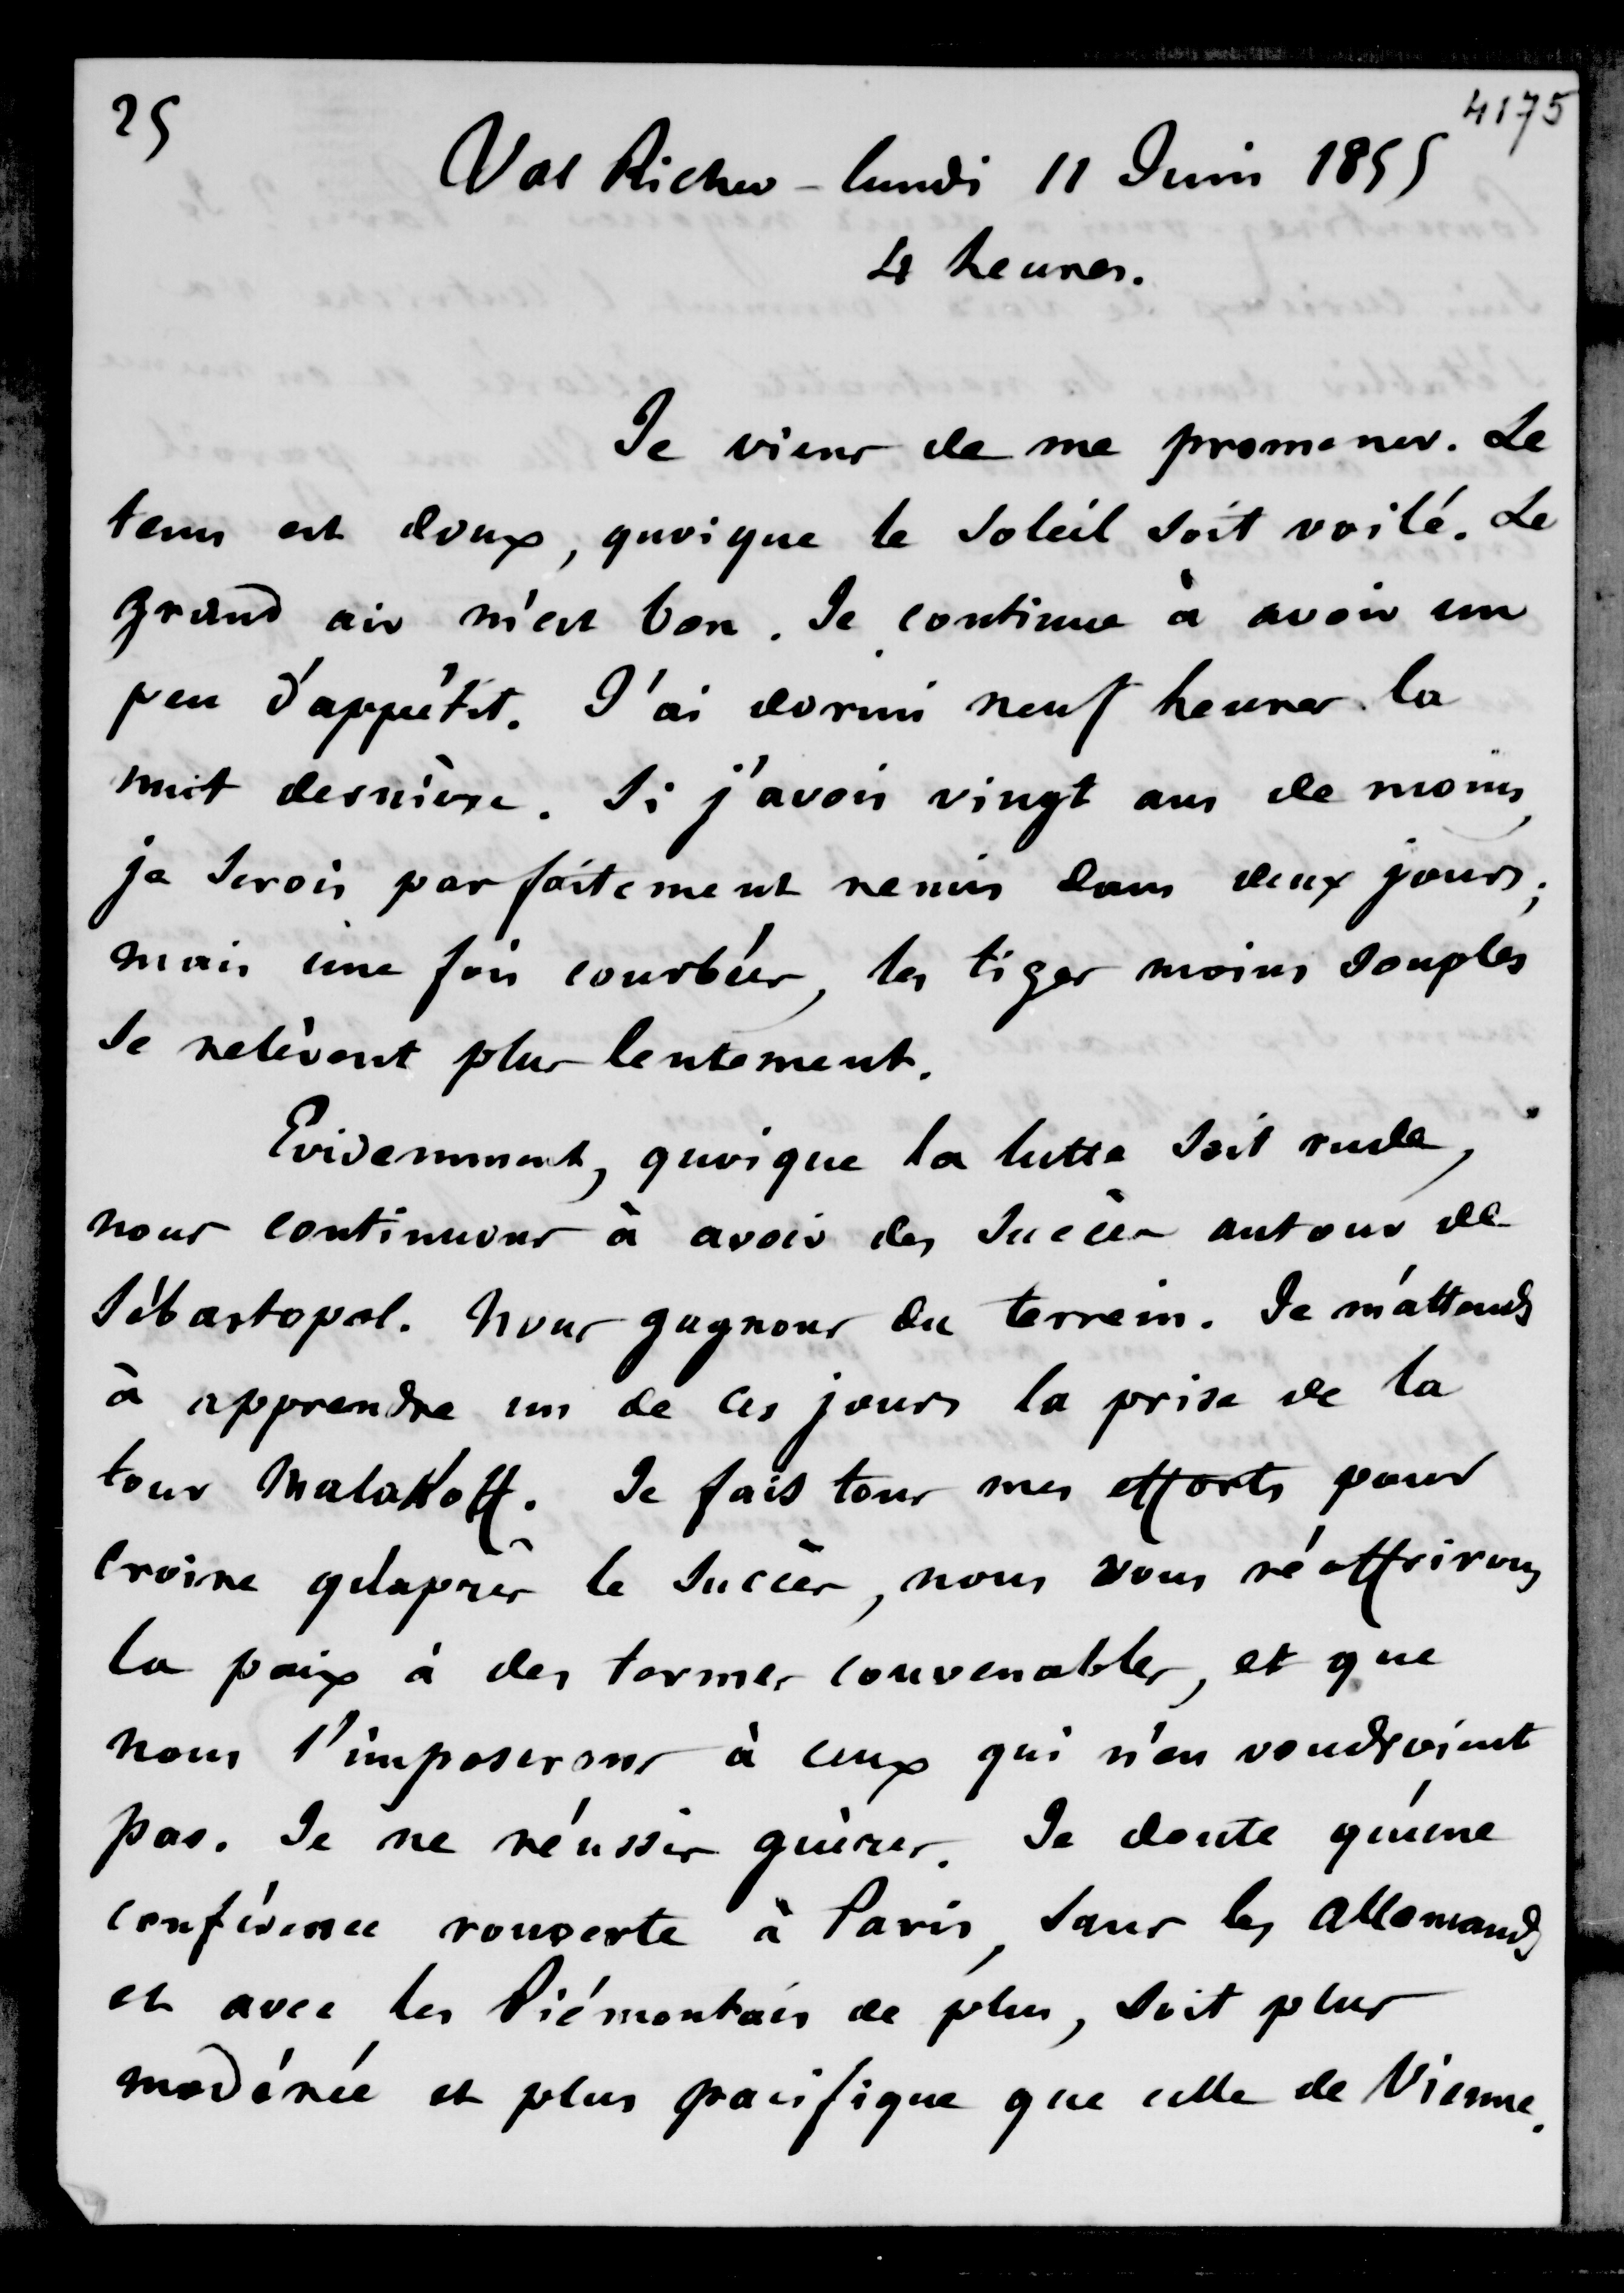 25
4175
Val Richer - lundi 11 Juin 1855
4 heures.
Je viens de me promener. Le
tems est doux, quoique le soleil soit voilé. Le
grand air m'est bon. Je continue à avoir un
peu d'appétit. J'ai dormi neuf heures la
nuit dernière. Si j'avois vingt ans de moins,
je serois parfaitement remis dans deux jours;
mais une fois courbées, les tiges moins souples
se relèvent plus lentement.
Evidemment, quoique la lutte soit rude,
nous continuons à avoir des succès autour de
Sébastopol. Nous gagnons du terrein. Je m'attends
à apprendre un de ces jours la prise de la
tour Malakoff. Je fais tous mes efforts pour
croire qu'après le succès, nous vous réoffrirons
la paix à des termes convenables, et que
nous l'imposerons à ceux qui n'en voudroient
pas. Je ne réussis guères. Je doute qu'une
conférence rouverte à Paris, sans les Allemands
et avec les Piémontais de plus, soit plus
modérée et plus pacifique que celle de Vienne.